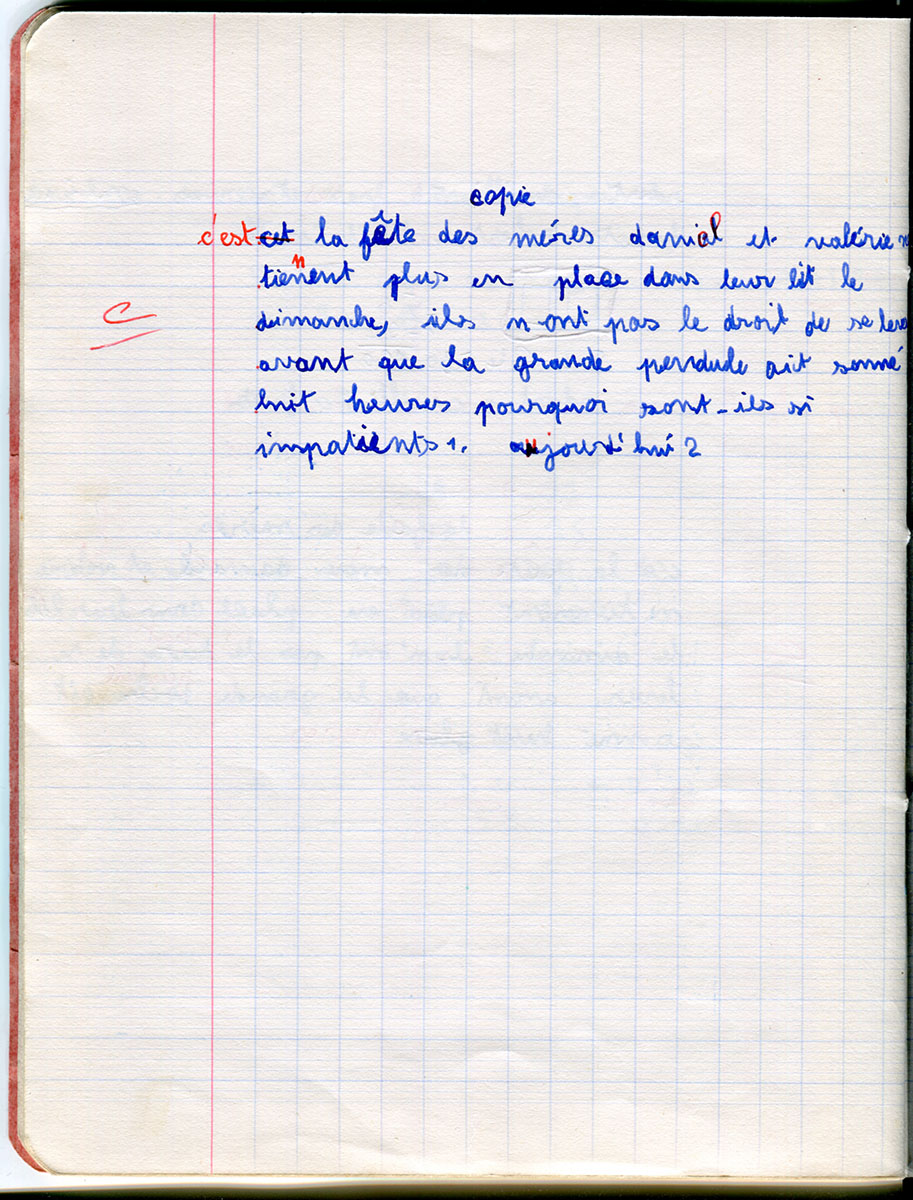 copie
c'est cet la fête des méres daniel et valérie
tiennent plus en place dans leur lit le
dimanche, ils n ont pas le droit de se lever
avant que la grande pendule ait sonné
huit heures pourquoi sont-ils si
impatients 1. aujourd'hui ?
C